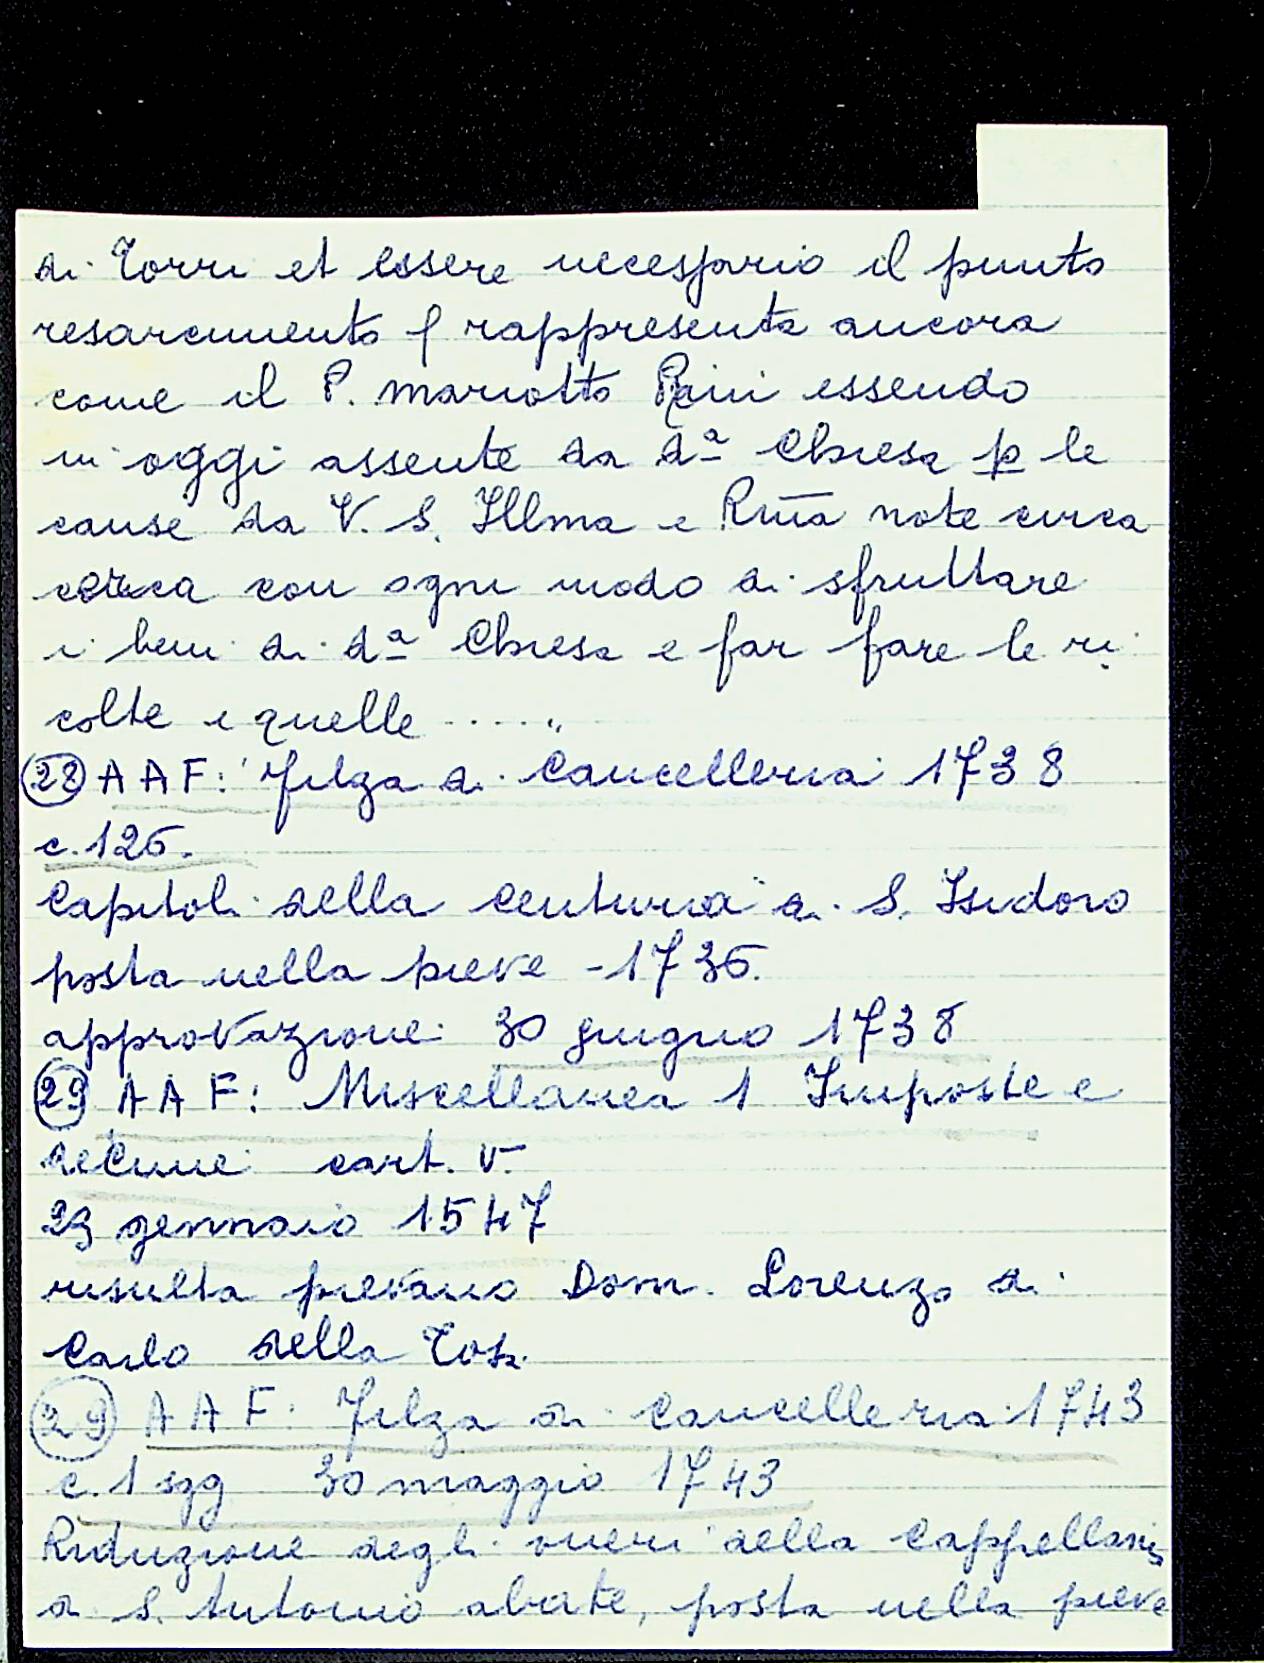 di Torri et essere necessario il punto
resarcimento p rappresenta ancora
come il P. Mariotto Raini essendo
in oggi assente da d.ª Chiesa p le
cause da V. S. Illma e Rma note circa
cerca con ogni modo di sfruttare
i beni di d.ª Chiesa e far fare le ri
colte e quelle ..... "
28 A A F: Filza di Cancelleria 1738
c. 126.
Capitoli della Centuria di S. Isidoro
posta nella pieve - 1736.
approvazione 30 giugno 1738
29 A A F: Miscellanea 1 Imposte e
decime cart. V.
23 gennaio 1547
risulta pievano Dom. Lorenzo di
Carlo della Tosa.
29 A A F. Filza di Cancelleria 1743
c. 1 sgg 30 maggio 1743
Riduzione degli oneri della Cappellania
di S. Antonio abate, posta nella pieve